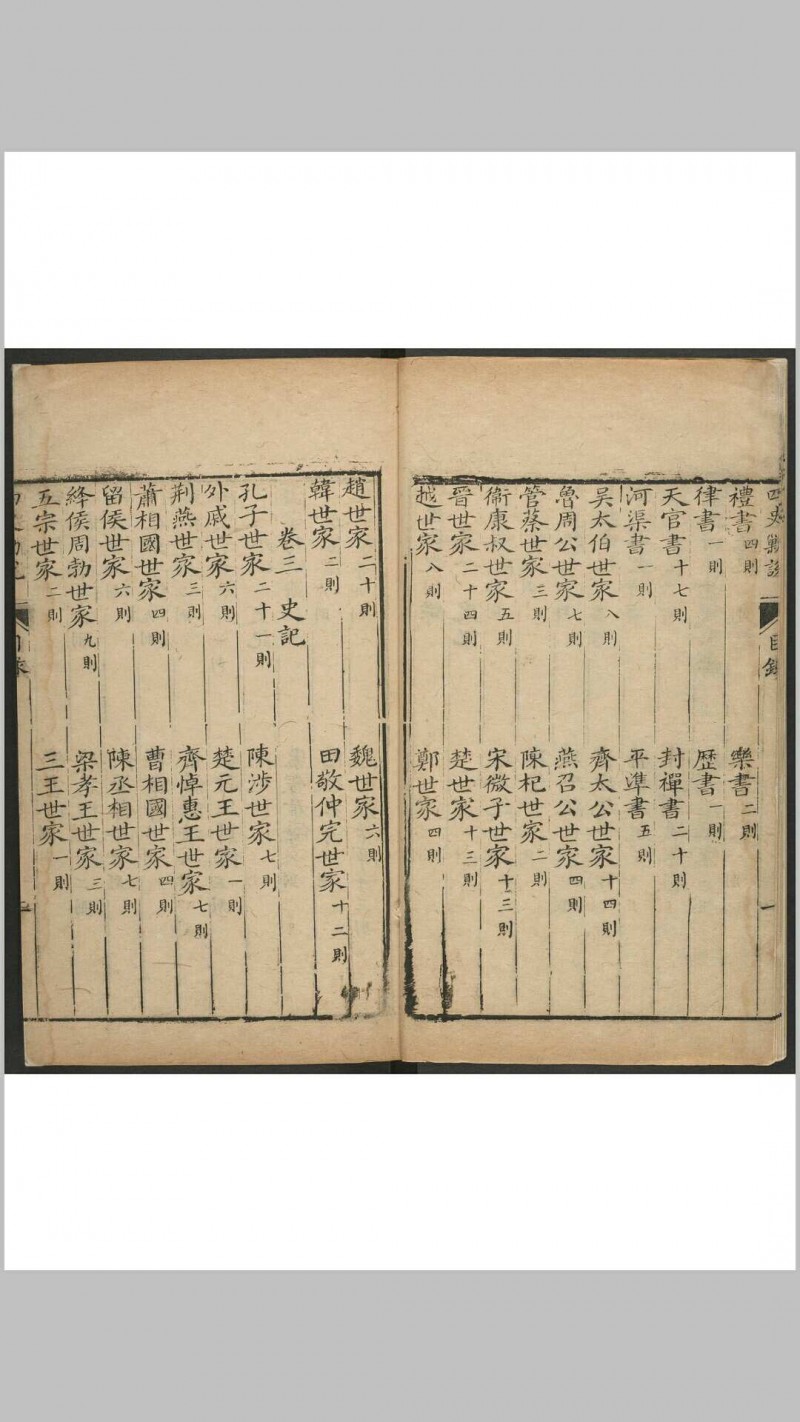 四史勦說 目錄 一
禮書 四則 樂書 二則
律書 一則 歷書 一則
天官書 十七則 封禪書 二十則
河渠書 一則 平準書 五則
吳太伯世家 八則 齊太公世家 十四則
魯周公世家 七則 燕召公世家 四則
管蔡世家 三則 陳杞世家 二則
衞康叔世家 五則 宋微子世家 十三則
晉世家 二十四則 楚世家 十三則
越世家 八則 鄭世家 四則
趙世家 二十則 魏世家 六則
韓世家 二則 田敬仲完世家 十二則
卷三 史記
孔子世家 二十一則 陳涉世家 七則
外戚世家 六則 楚元王世家 一則
荆燕世家 三則 齊悼惠王世家 七則
蕭相國世家 四則 曹相國世家 四則
留侯世家 六則 陳丞相世家 七則
絳侯周勃世家 九則 梁孝王世家 三則
五宗世家 二則 三王世家 一則